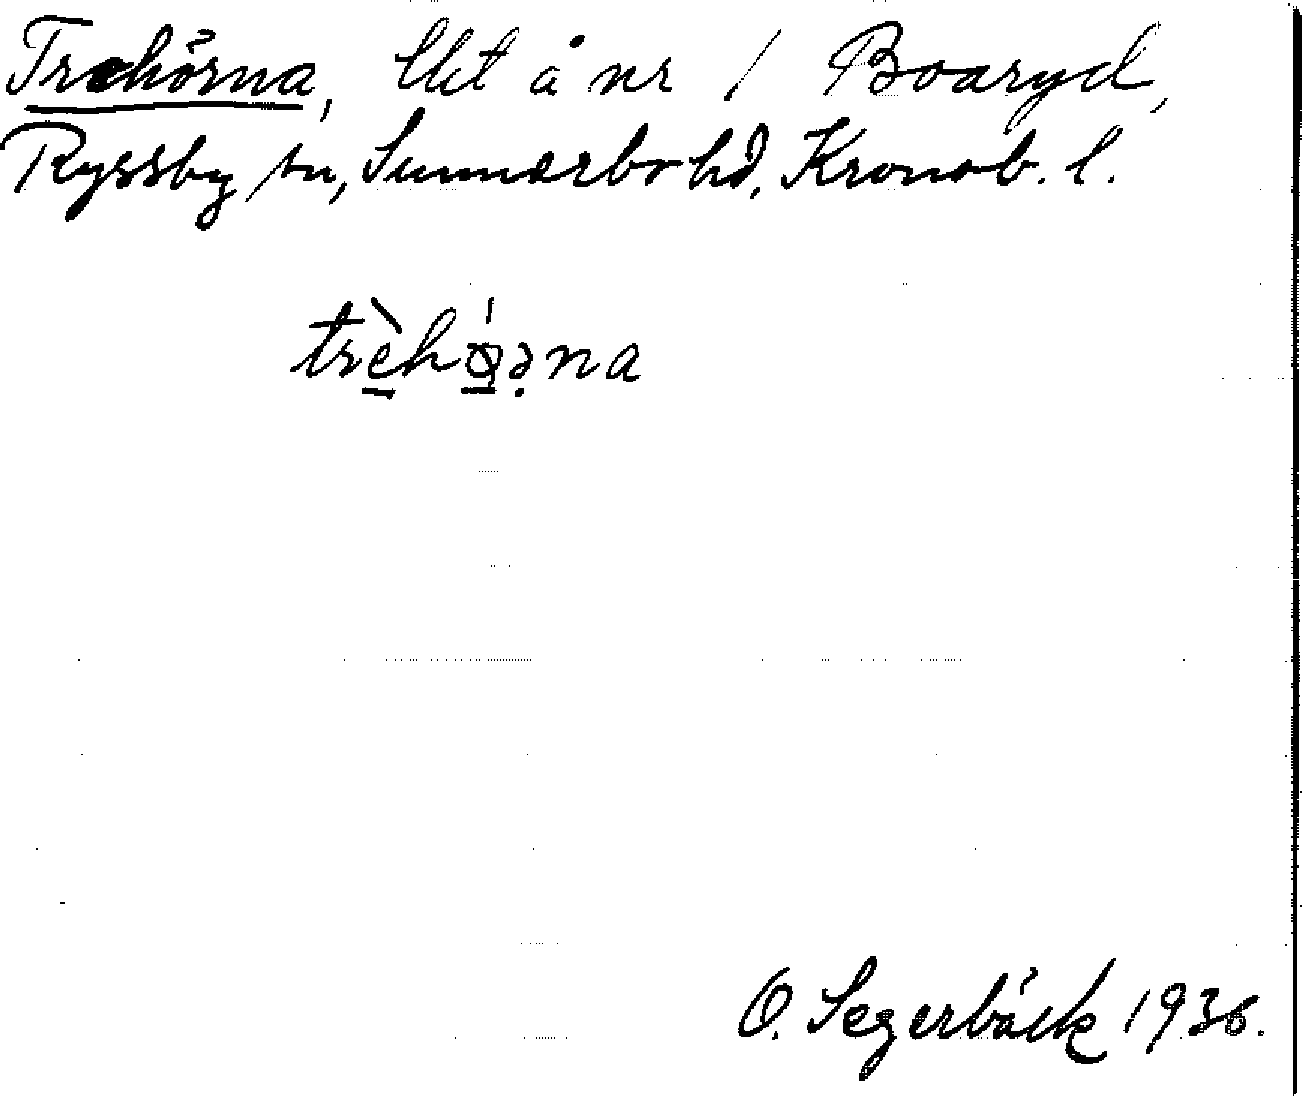 Trehörna, lht å nr 1 Boaryd,
Ryssby sn, Sunnerbo hd, Kronob. l.
trèhö́̀əna
O. Segerbäck 1936.